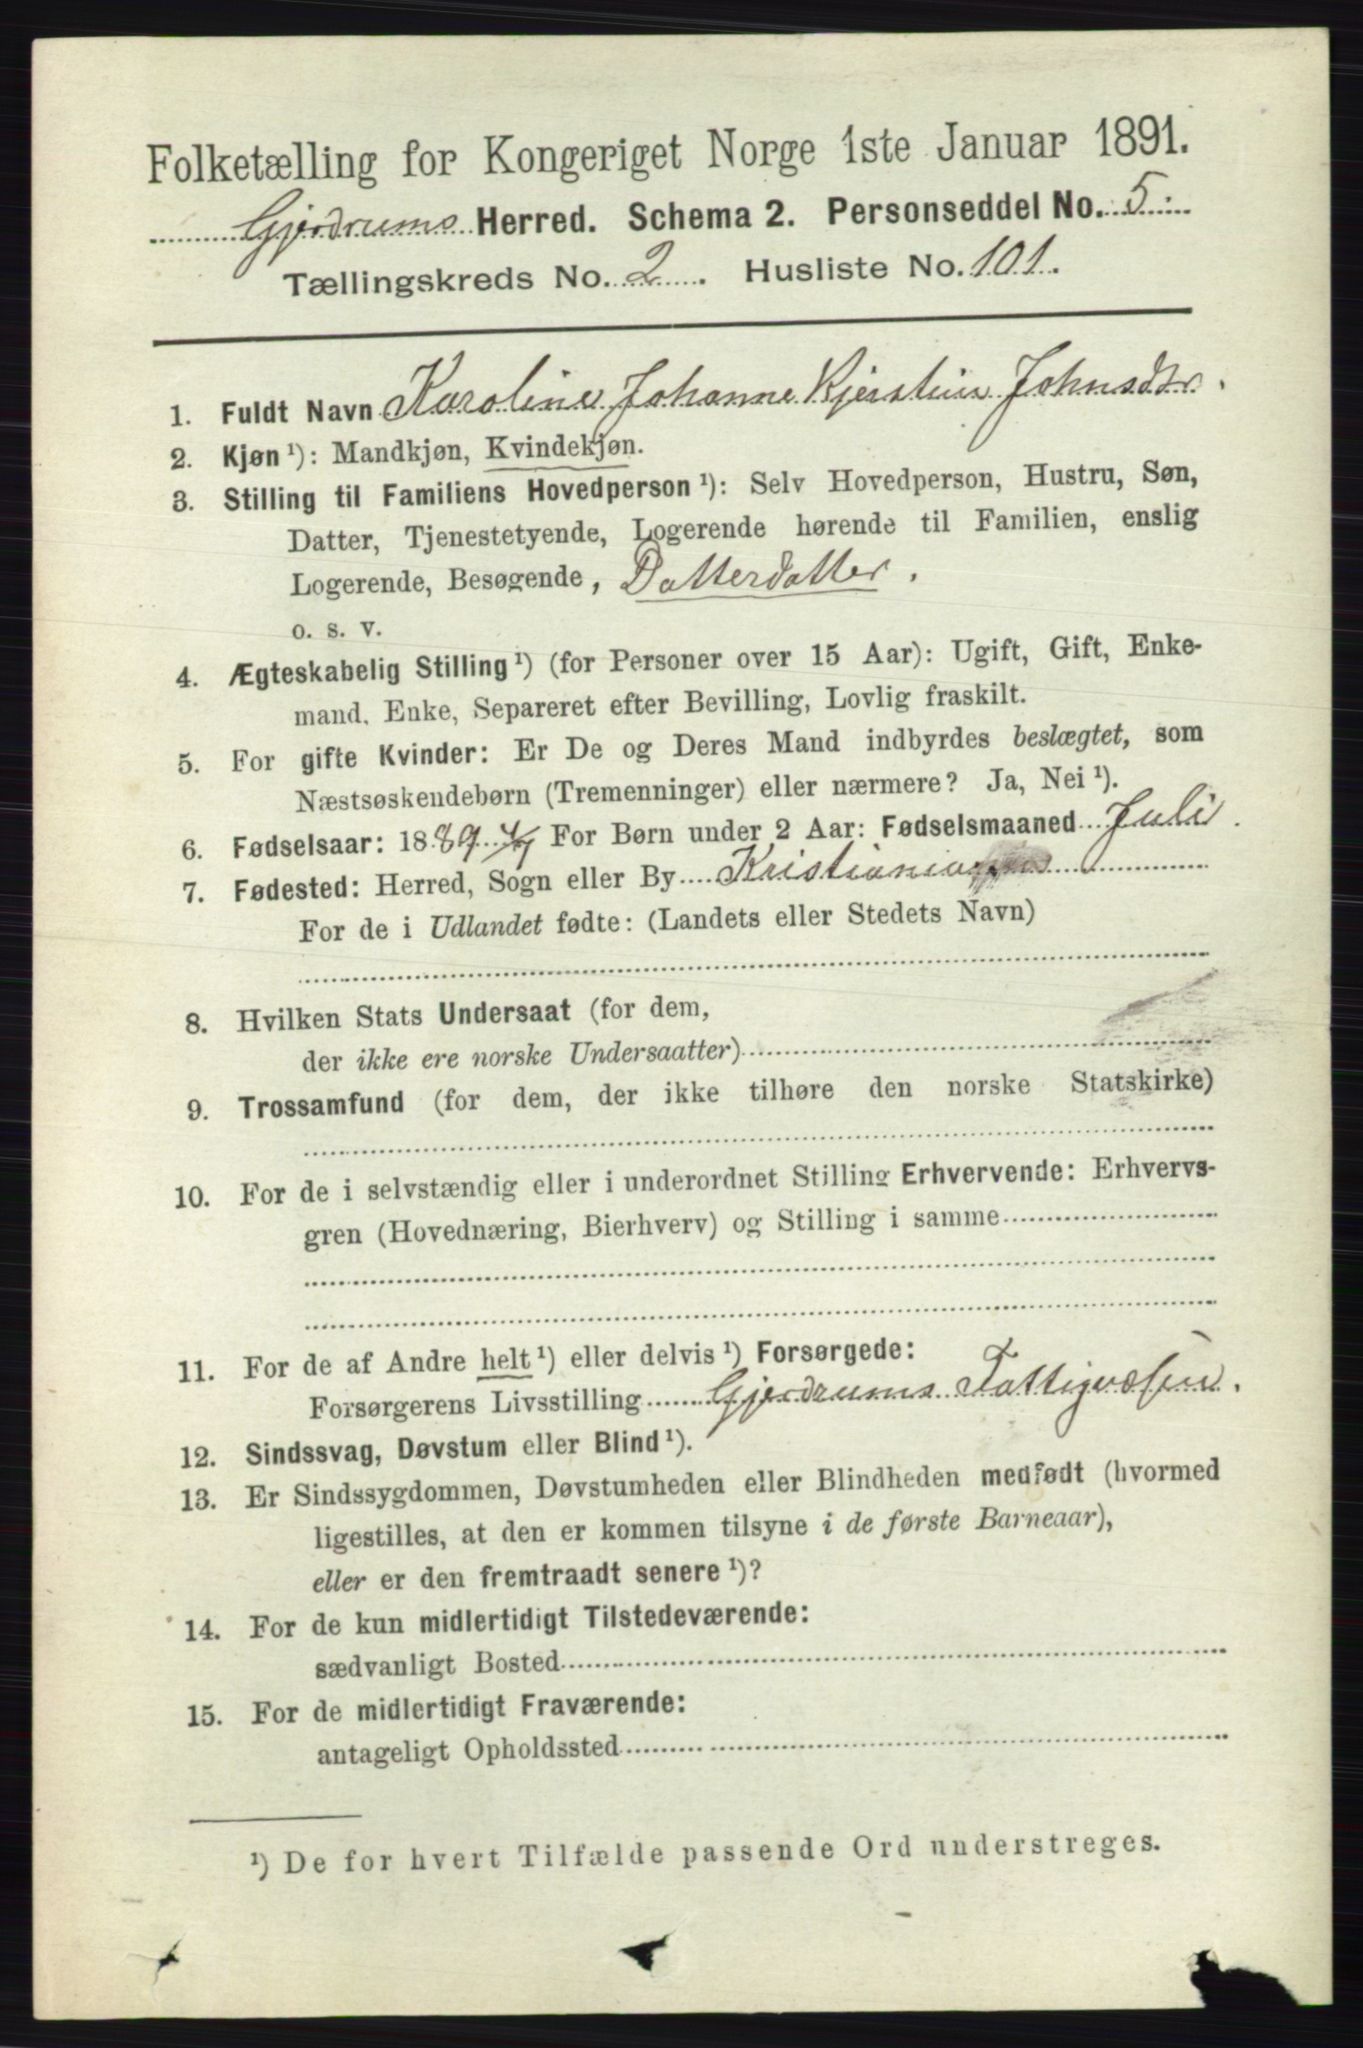 Folketælling for Kongeriget Norge 1ste Januar 1891.
Gjerdrums Herred. Schema 2. Personseddel No. 5.
Tællingskreds No. 2. Husliste No. 101.
1. Fuldt Navn Karoline Johanne Kjerstine Johnsdtr.
2. Kjøn ¹): Mandkjøn, Kvindekjøn.
3. Stilling til Familiens Hovedperson ¹): Selv Hovedperson, Hustru, Søn,
Datter, Tjenestetyende, Logerende hørende til Familien, enslig
Logerende, Besøgende, Datterdatter.
o. s. v.
4. Ægteskabelig Stilling ¹) (for Personer over 15 Aar): Ugift, Gift, Enke-
mand, Enke, Separeret efter Bevilling, Lovlig fraskilt.
5. For gifte Kvinder: Er De og Deres Mand indbyrdes beslægtet, som
Næstsøskendebørn (Tremenninger) eller nærmere? Ja, Nei ¹).
6. Fødselsaar: 1889 For Børn under 2 Aar: Fødselsmaaned Juli.
7. Fødested: Herred, Sogn eller By Kristiania
For de i Udlandet fødte: (Landets eller Stedets Navn)
8. Hvilken Stats Undersaat (for dem,
der ikke ere norske Undersaatter)
9. Trossamfund (for dem, der ikke tilhøre den norske Statskirke)
10. For de i selvstændig eller i underordnet Stilling Erhvervende: Erhvervs-
gren (Hovednæring, Bierhverv) og Stilling i samme
11. For de af Andre helt ¹) eller delvis ¹) Forsørgede:
Forsørgerens Livsstilling Gjerdrums Fattigvæsen.
12. Sindssvag, Døvstum eller Blind ¹).
13. Er Sindssygdommen, Døvstumheden eller Blindheden medfødt (hvormed
ligestilles, at den er kommen tilsyne i de første Barneaar),
eller er den fremtraadt senere ¹)?
14. For de kun midlertidigt Tilstedeværende:
sædvanligt Bosted
15. For de midlertidigt Fraværende:
antageligt Opholdssted
¹) De for hvert Tilfælde passende Ord understreges.